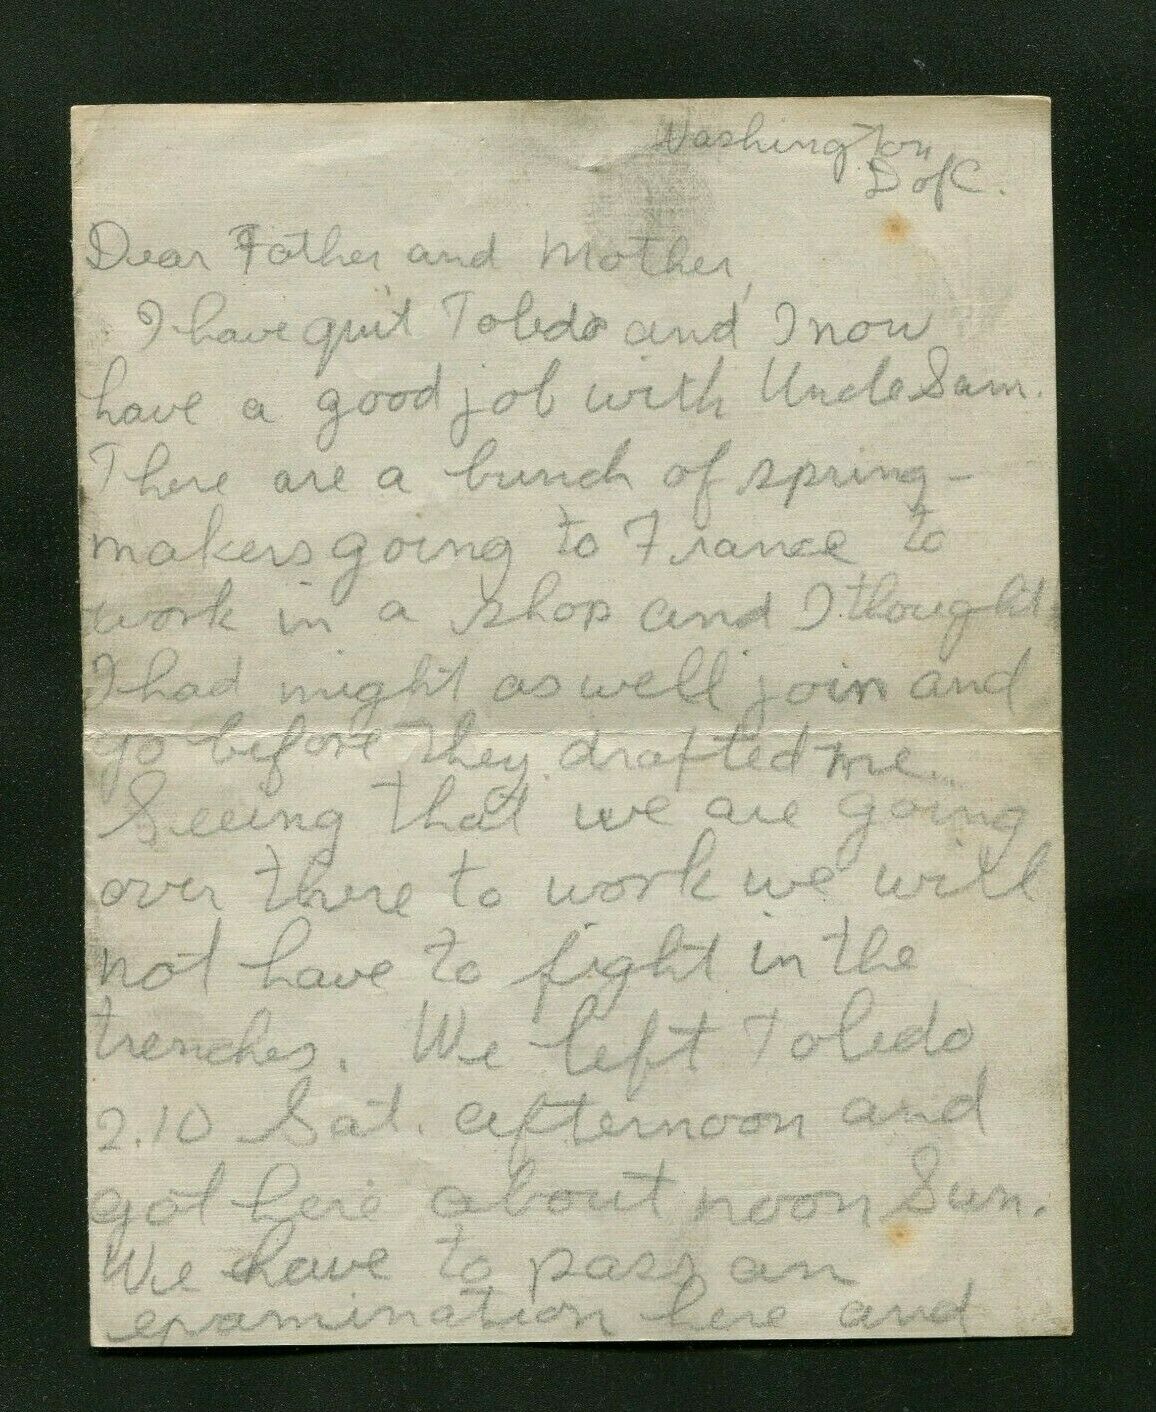 Washington
D of C.
Dear Father and Mother,
I have quit Toledo and I now
have a good job with Uncle Sam.
There are a bunch of spring-
makers going to France to
work in a shop and I thought
I had might as well join and
go before they drafted me.
Seeing that we are going
over there to work we will
not have to fight in the
trenches. We left Toledo
2.10 Sat. afternoon and
got here about noon Sun.
We have to pass an
examination here and